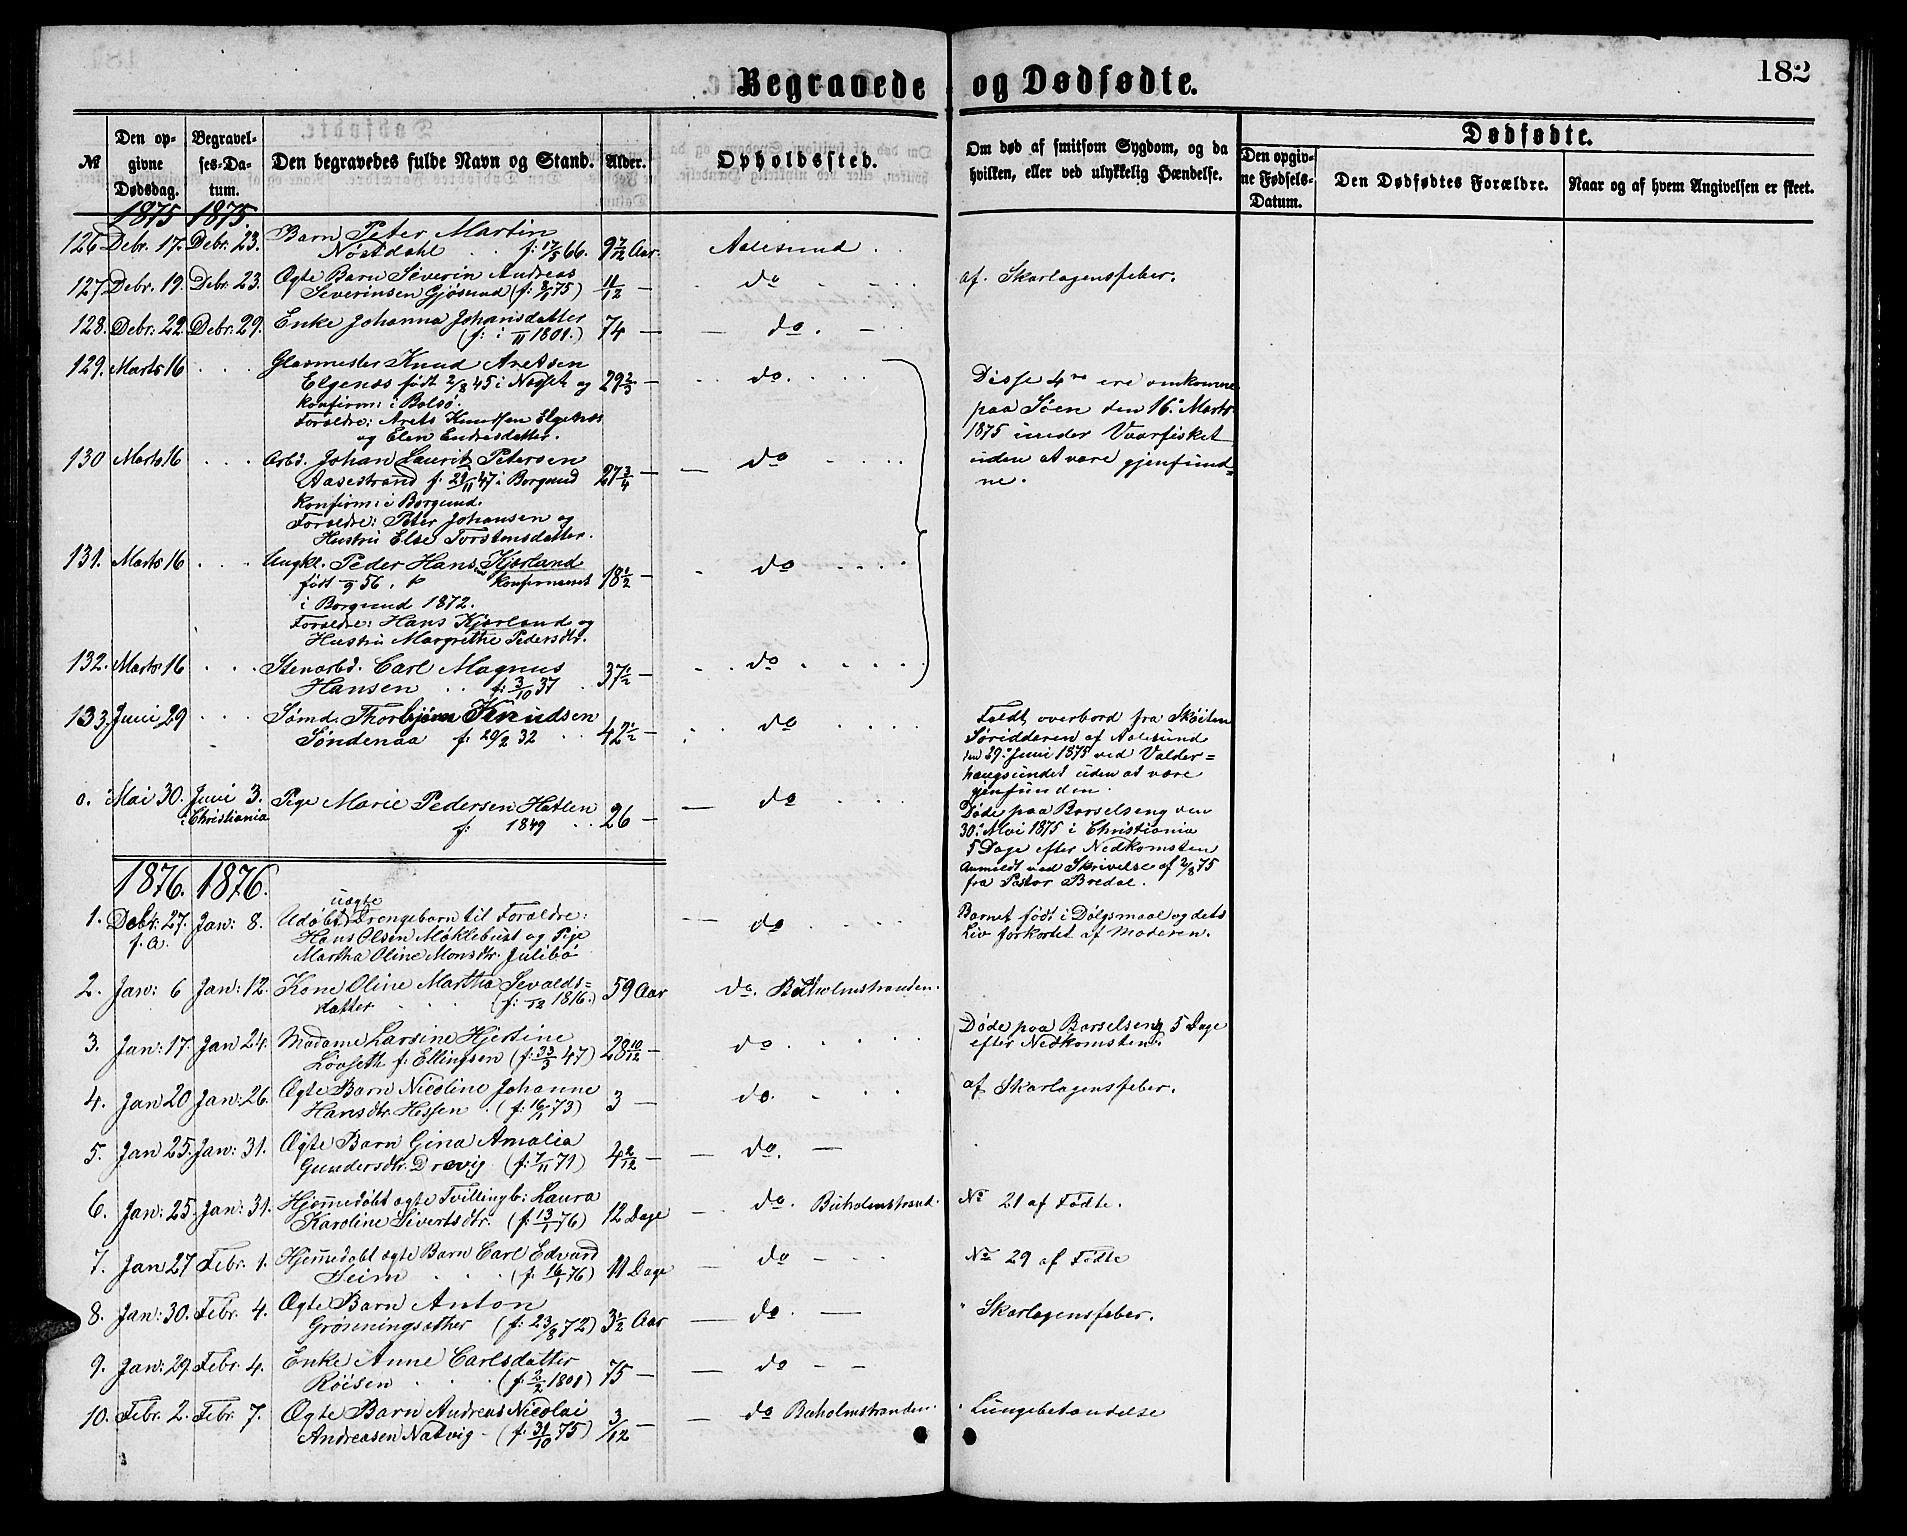 182
Begravede og Dødfødte.
№
Den opgivne Dødsdag.
Begravelses-Datum.
Den begravedes fulde Navn og Stand.
Alder.
Opholdssted.
Om død af smitsom Sygdom, og da hvilken, eller ved ulykkelig Hændelse.
Dødfødte.
Den opgivne Fødsels-Datum.
Den Dødfødtes Forældre.
Naar og af hvem Angivelsen er skeet.
1875 1875
126 Debr. 17. Debr. 23. Barn Peter Martin
Nöstdahl . . f: 17/5 66. 9 7/12 Aar. Aalesund .
127 Debr. 19. Debr. 23. Ægte Barn Severin Andreas
Severinsen Gjøsund (f: 8/1 75) 11/12 — do af. Skarlagensfeber.
128. Debr. 22. Debr. 29. Enke Johanna Johansdatter
(f: i /11 1801.) 74 — do.
129. Marts 16 . . . Glasmester Knud Aretsen
Elgenæs født 2/8 45 i Nesset og 29 2/3 — do.
Konfirm: i Bolsö.
Forældre: Arets Knudsen Elgenæs
og Elen Endresdatter.
Disse 4re ere omkomne
paa Søen den 16de Marts
1875 under Vaarfisket
uden at være gjenfund=
ne.
130 Marts 16 . . . Arbd. Johan Laurits Petersen
Aasestrand f: 29/11 47 i Borgund 27 3/4 — do
Konfirm: i Borgund.
Forældre: Peter Johansen og
Hustru Else Torstensdatter.
131. Marts 16 . . . Ungkl. Peder Hans Kjørland
født /9 56, Konfirmeret 18 1/2 — do
i Borgund 1872.
Forældre: Hans Kjørland og
Hustru Margrethe Pedersdtr.
132. Marts 16 . . . Stenarbd. Carl Magnus
Hansen . . f: 3/10 37 . 37 1/2 — do
133. Juni 29 . . . Sømd. Thorbjørn Knudsen
Søndenaa f: 20/2 32 . . 42 1/2 — do
Faldt overbord fra Skøiten
Søridderen af Aalesund
den 29de Juni 1875 ved Valder=
haugsundet uden at være
gjenfunden.
o. Mai 30. Juni 3. Pige Marie Pedersen Hatlen
i Christiania f: 1849 . . 26 — do
Døde paa Barselseng den
30te Mai 1875 i Christiania
5 Dage efter Nedkomsten
Anmeldt ved Skrivelse af 2/8 75
fra Pastor Bredal.
1876. 1876.
1. Debr. 27. Jan: 8. Udøbt uægte Drengebarn til Forældre: do
f. a. Hans Olsen Møklebust og Pige
Martha Oline Monsdtr. Julibø
Barnet født i Dølgsmaal og dets
Liv forkortet af Moderen.
2. Jan: 6 Jan: 12. Kone Oline Martha Sevalds=
datter (f: /12 1816.) 59 Aar do. Buholmstranden.
3. Jan: 17. Jan 24. Madame Larsine Hjertine
Løvseth f. Ellingsen (f: 23/3 47) 28 10/12 — do
Døde paa Barselseng 5 Dage
efter Nedkomsten.
4. Jan 20 Jan: 26. Ægte Barn Nicoline Johanne
Hansdtr. Hessen . (f: 16/1 73) 3 — do. af Skarlagensfeber.
5. Jan 25. Jan: 31. Ægte Barn Gina Amalia
Gundersdtr. Drevig (f: 7/11 71) 4 2/12 — do.
6. Jan: 25. Jan: 31. Hjemmedøbt ægte Tvillingb: Laura
Karoline Sivertsdtr. (f: 13/1 76) 12 Dage do. Buholmstrand. No 21 af Fødte.
7. Jan 27 Febr. 1. Hjemmedøbt ægte Barn Carl Edvard
Heim . . . (f: 16/1 76) 11 Dage do No 29 af Fødte
8. Jan: 30. Febr. 4. Ægte Barn Anton
Grønningsæther (f: 23/8 72) 3 1/2 Aar do. Skarlagensfeber.
9. Jan: 29. Febr. 4. Enke Anne Carlsdatter
Röisen . . . (f: 2/2 1801) 75 — do
10. Febr. 2. Febr. 7. Ægte Barn Andreas Nicolai
Andreasen Natvig (f: 31/10 75) 3/12 — do Buholmstranden. Lungebetændelse